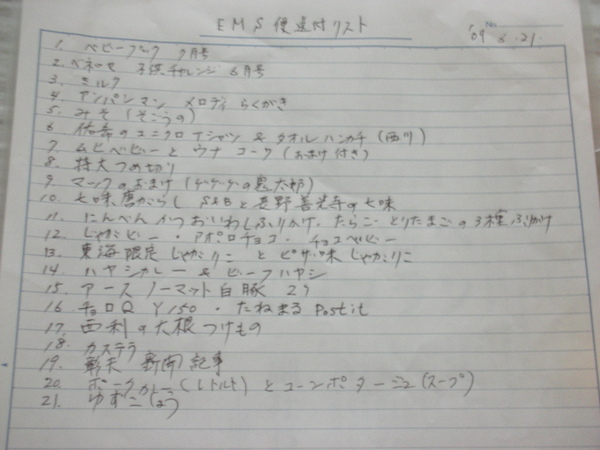 EMS便送付リスト
'09 6.21.
1. ベビーブック 7月号
2. ベネッセ 子供チャレンジ 6月号
3. ミルク
4. アンパンマン メロディ らくがき
5. みそ (そごうの)
6. 佑希のユニクロTシャツ & タオルハンカチ (西川)
7. ムヒベビーと ウナ コーワ (おまけ付き)
8. 特大つめ切り
9. マックのおまけ (ゲゲゲの鬼太郎)
10. 七味唐がらし S&Bと長野善光寺の七味
11. にんべん かつおいわしふりかけ、たらこ、とりたまごの3種ふりかけ
12. じゃがビー ・ アポロチョコ ・ チョコベビー
13. 東海限定 じゃがりこ と ピザ味じゃがりこ
14. ハヤシカレー & ビーフハヤシ
15. アース ノーマット 白豚 2ケ
16. チョロQ ¥150 ・ たねまる Postit
17. 西利の大根つけもの
18. カステラ
19. 楽天 新聞記事
20. ポークカレー(レトルト) と コーンポタージュ(スープ)
21. ゆずこしょう